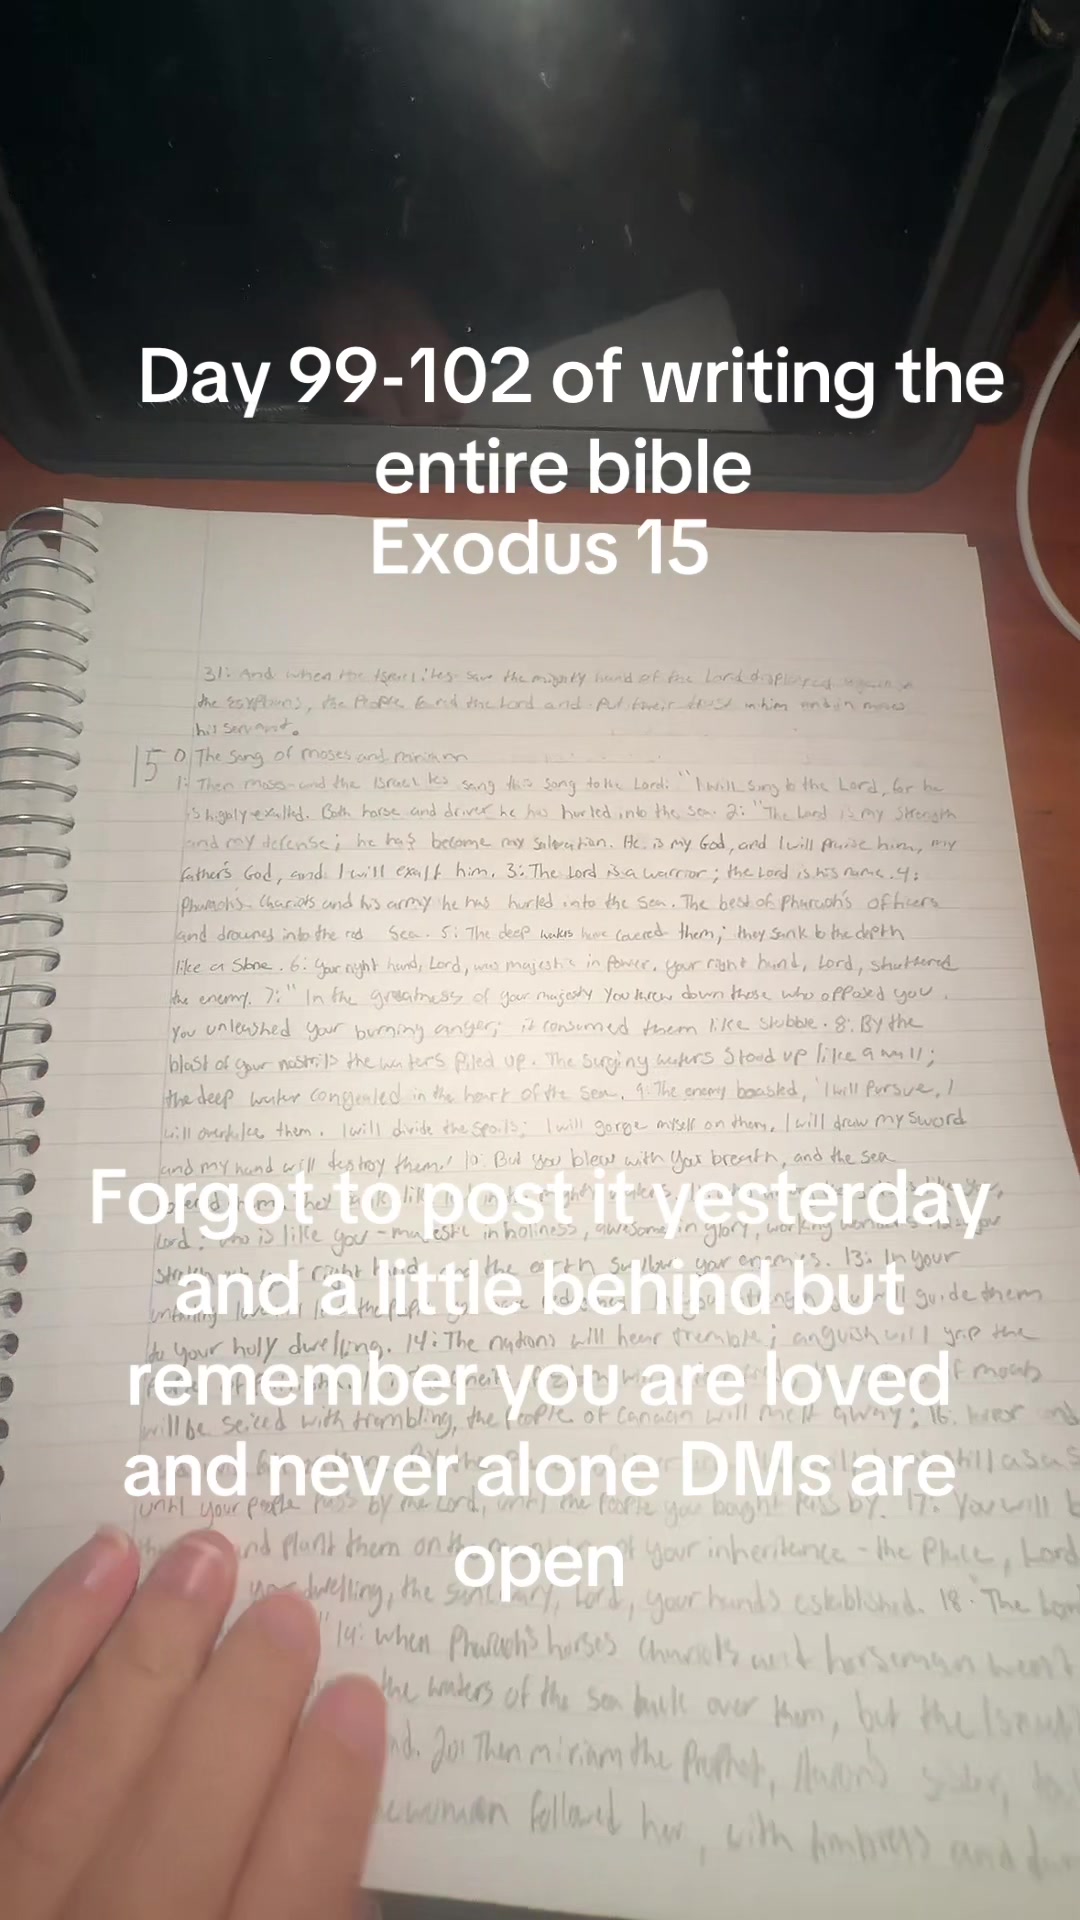 Day 99-102 of writing the
entire bible
Exodus 15
31: And when the Israelites saw the mighty hand of the Lord displayed against
the Egyptians, the people feared the Lord and put their trust in him and in moses
his servant.
15 0 The Song of moses and miriam
1: Then moses and the Israelites sang this song to the Lord: "I will sing to the Lord, for he
is highly exalted. Both horse and driver he has hurled into the sea. 2: "The Lord is my strength
and my defense; he has become my salvation. He is my God, and I will praise him, my
father's God, and I will exalt him. 3: The Lord is a warrior; the Lord is his name. 4:
Pharaoh's chariots and his army he has hurled into the sea. The best of Pharaoh's officers
and drowned into the red Sea. 5: The deep waters have covered them; they sank to the depth
like a stone. 6: Your right hand, Lord, was majestic in power. Your right hand, Lord, shattered
the enemy. 7: "In the greatness of your majesty you threw down those who opposed you.
You unleashed your burning anger; it consumed them like stubble. 8: By the
blast of your nostrils the waters piled up. The surging waters stood up like a wall;
the deep water congealed in the heart of the sea. 9: The enemy boasted, 'I will pursue, I
will overtake them. I will divide the spoils; I will gorge myself on them. I will draw my sword
and my hand will destroy them.' 10: But you blew with your breath, and the sea
Forgot to post it yesterday
Lord? who is like you - majestic in holiness, awesome in glory, working wonders
right hand and the earth swallows your enemies. 13: In your
and a little behind but
will guide them
to your holy dwelling. 14: The nations will hear tremble; anguish will grip the
remember you are loved
of moab
will be seized with trembling, the people of Canaan will melt away; 16:
and never alone DMs are
until your people pass by me Lord, until the people you bought pass by. 17: You will
open
and plant them on the of your inheritence - the place, Lord
your dwelling, the sanctuary, Lord, your hands established. 18: The Lord
19: when Pharaoh's horses chariots and horseman went
the waters of the sea back over them, but the
20: Then miriam the Prophet, Aaron's sister,
woman followed her, with timbrels and